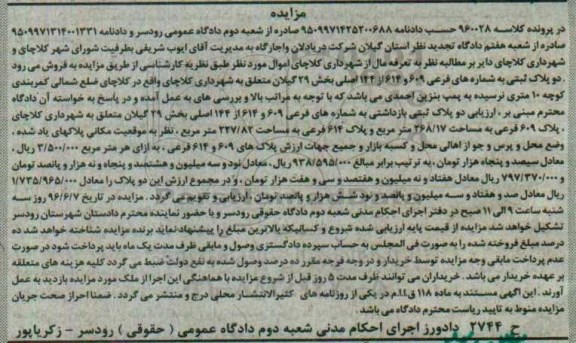 مزایده
در پرونده کلاسه ۹۶۰۰۲۸ حسب دادنامه ۹۵۰۹۹۷۱۴۲۵۲۰۰۶۸۸ صادره از شعبه دوم دادگاه عمومی رودسر و دادنامه ۹۵۰۹۹۷۱۳۱۴۰۰۱۳۳۱
صادره از شعبه هفتم دادگاه تجدید نظر استان گیلان شرکت دریادلان واجارگاه به مدیریت آقای ایوب شریفی بطرفیت شورای شهر کلاچای و
شهرداری کلاچای دایر بر مطالبه نظر به تعرفه مال از شهرداری کلاچای اموال مورد نظر طبق نظریه کارشناسی از طریق مزایده به فروش می رود
. دو پلاک ثبتی به شماره های فرعی ۶۰۹ و ۶۱۴ از ۱۴۴ اصلی بخش ۲۹ گیلان متعلق به شهرداری کلاچای واقع در کلاچای ضلع شمالی کمربندی
کوچه ۱۰ متری نرسیده به پمپ بنزین احمدی می باشد که با توجه به مراتب بالا و بررسی های به عمل آمده و در پاسخ به خواسته آن دادگاه
محترم مبنی بر ، ارزیابی دو پلاک ثبتی بازداشتی به شماره های فرعی ۶۰۹ و ۶۱۴ از ۱۴۴ اصلی بخش ۲۹ گیلان متعلق به شهرداری کلاچای
، پلاک ۶۰۹ فرعی به مساحت ۲۶۸/۱۷ متر مربع و پلاک ۶۱۴ فرعی به مساحت ۲۲۷/۸۲ متر مربع ، نظر به موقعیت مکانی پلاکهای یاد شده ،
وضع محل و پرس و جو از اهالی محل و کسبه بازار و جمیع جهات ارزش پلاک های ۶۰۹ و ۶۱۴ فرعی ، به ازای هر متر مربع ۳/۵۰۰/۰۰۰ ریال ،
معادل سیصد و پنجاه هزار تومان ، به ترتیب برابر مبالغ ۹۳۸/۵۹۵/۰۰۰ ریال ، معادل نود و سه میلیون و هشتصد و پنجاه و نه هزار و پانصد تومان
و ۷۹۷/۳۷۰/۰۰۰ ریال معادل هفتاد و نه میلیون و هفتصد و سی و هفت هزار تومان ، و در مجموع ارزش این دو پلاک را معادل ۱/۷۳۵/۹۶۵/۰۰۰
ریال معادل صد و هفتاد و سه میلیون و پانصد و نود شش هزار و پانصد تومان ، ارزیابی و تقویم می گردد . مزایده در تاریخ ۹۶/۶/۷ روز سه
شنبه ساعت ۹ الی ۱۱ صبح در دفتر اجرای احکام مدنی شعبه دوم دادگاه حقوقی رودسر و با حضور نماینده محترم دادستان شهرستان رودسر
تشکیل خواهد شد. مزایده از قیمت پایه ارزیابی شده شروع و کسانیکه بالاترین مبلغ را پیشنهاد نماید برنده مزایده شناخته خواهد شد ده
درصد مبلغ فروخته شده را به صورت فی المجلس به حساب سپرده دادگستری وصول و مابقی ظرف مدت یک ماه باید پرداخت شود در صورت
عدم پرداخت مابقی وجه مزایده توسط خریدار و در وجه فرجه مقرر ده درصد وصول شده به نفع دولت ضبط می گردد کلیه هزینه های متعلقه
بر عهده خریدار می باشد . خریداران می توانند ظرف مدت ۵ روز قبل از شروع مزایده با هماهنگی این اجرا از ملک مورد مزایده بازدید به عمل
آورند . این آگهی مستندا به ماده ۱۱۸ ق.ا.م در یکی از روزنامه های کثیرالانتشار محلی درج و منتشر می گردد . ضمنا احراز صحت جریان
مزایده منوط به تایید ریاست محترم دادگاه می باشد .
ح ۲۷۴۴ دادورز اجرای احکام مدنی شعبه دوم دادگاه عمومی ( حقوقی ) رودسر - زکریاپور